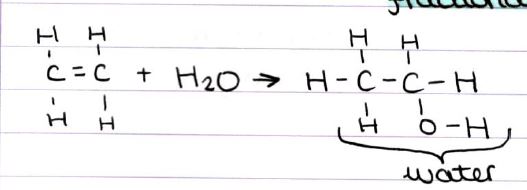 H H H H
C = C + H2O → H - C - C - H
H H H O - H
water